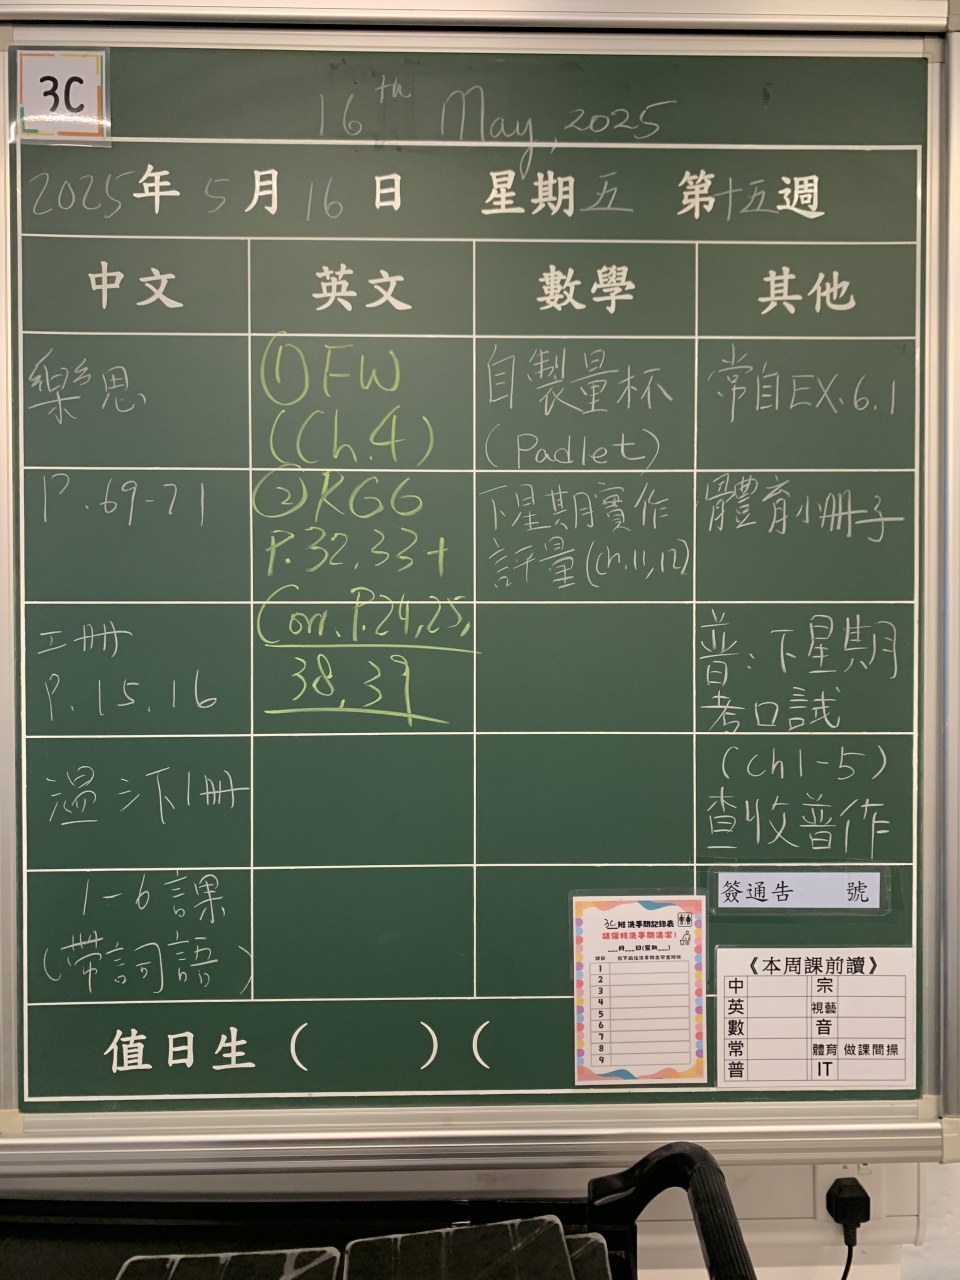 3C
16th May, 2025
2025年 5月 16日 星期五 第十五週
中文 英文 數學 其他
樂思
P.69-71
工冊
P.15.16
溫 默1冊
1-6課
(帶詞語)
①FW
(Ch.4)
②RGG
P.32,33+
Corr. P.24,25,
38,39
自製量杯
(Padlet)
下星期實作
評量(Ch.11,12)
常自EX.6.1
體育小冊子
普:下星期
考口試
(Ch1-5)
查收普作
簽通告 號
值日生( )(
3C班洗手間記錄表
請保持洗手間清潔!
___月___日(星期___)
1
2
3
4
5
6
7
8
9
《本周課前讀》
中 宗
英 視藝
數 音
常 體育 做課間操
普 IT